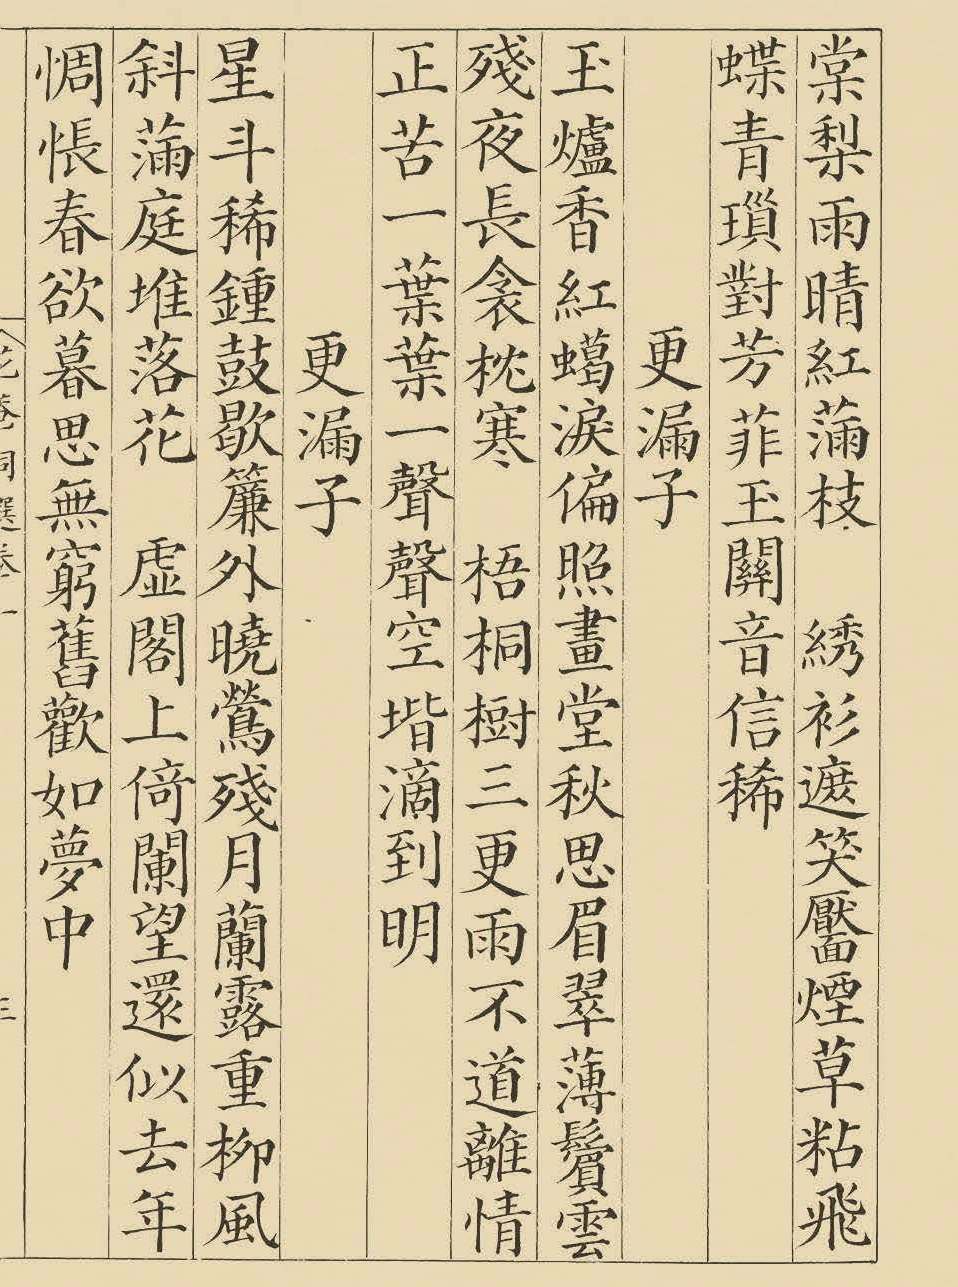 棠梨雨晴紅蒲枝　綉衫遮笑靨煙草粘飛
蝶青瑣對芳菲玉關音信稀
更漏子
玉爐香紅蠟淚偏照畫堂秋思眉翠薄鬢雲
殘夜長衾枕寒　梧桐樹三更雨不道離情
正苦一葉葉一聲聲空堦滴到明
更漏子
星斗稀鍾鼓歇簾外曉鶯殘月蘭露重柳風
斜蒲庭堆落花　虛閣上倚闌望還似去年
惆悵春欲暮思無窮舊歡如夢中
花菴詞選卷一
三